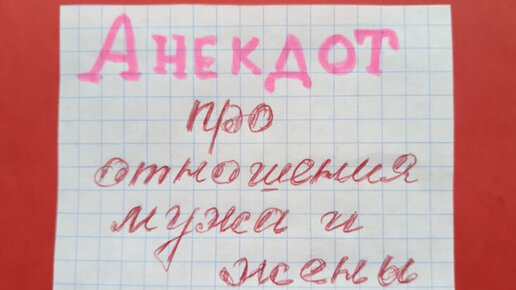 Анекдот
про
отношения
мужа и
жены